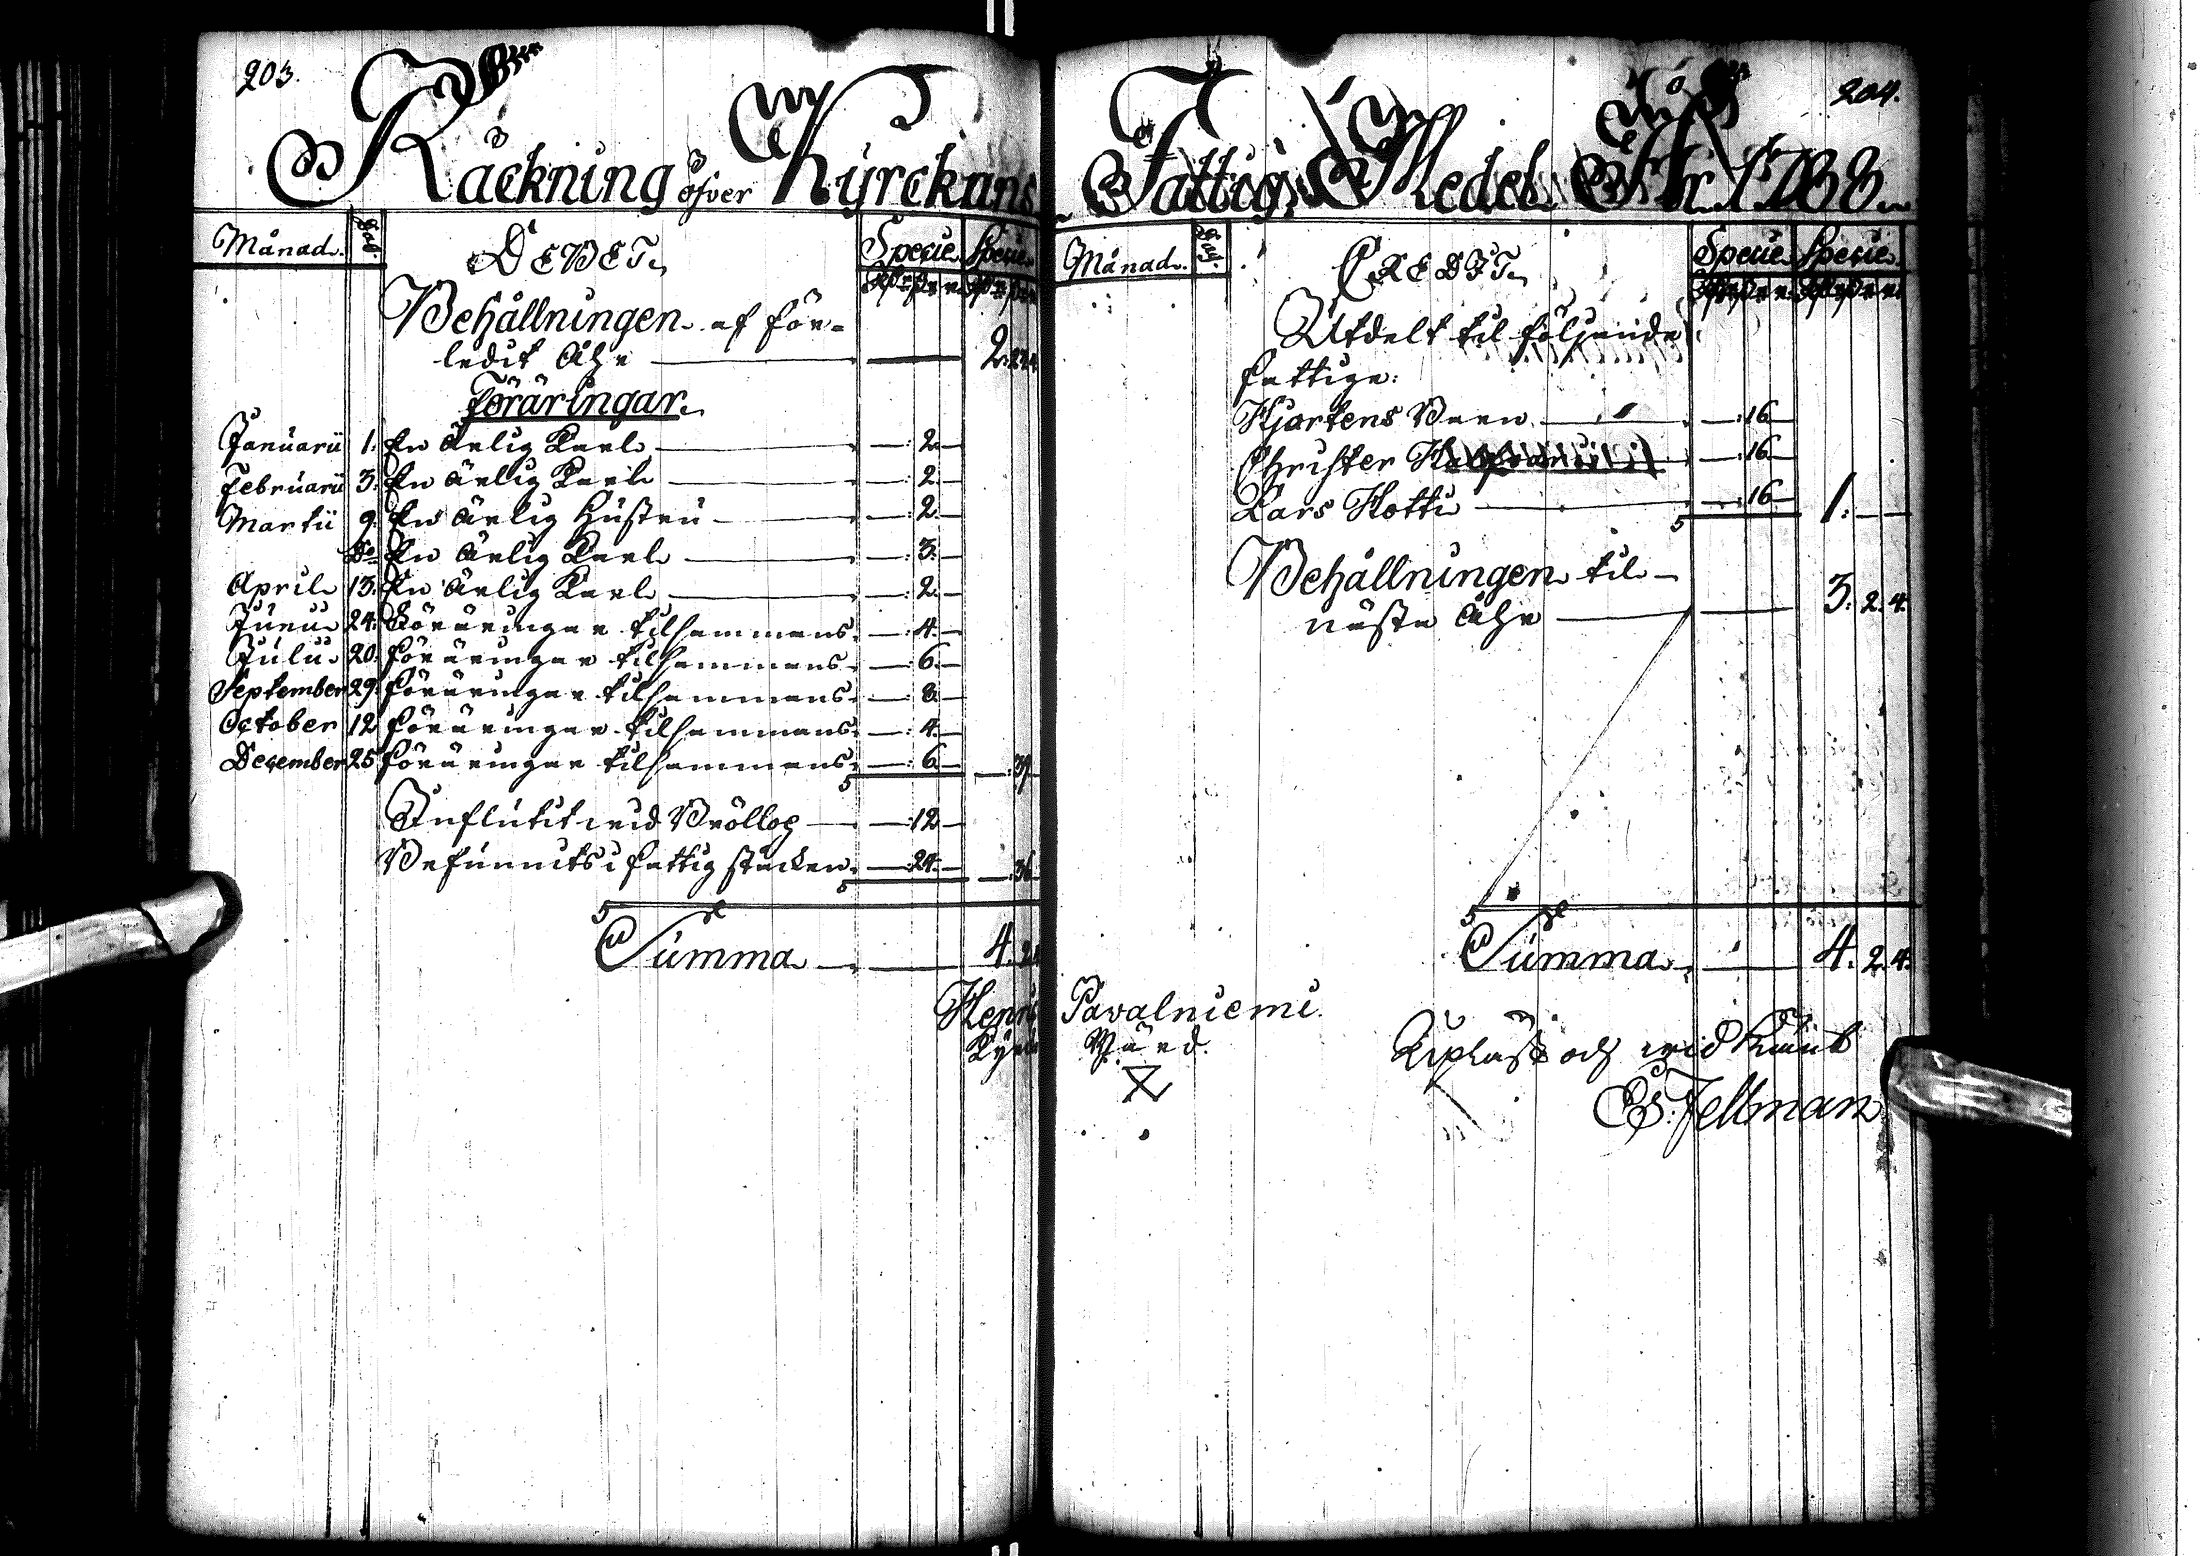 203.
Räckning öfver Kyrckans
Månad. Dat. DEBET. Specie Specie
Behållningen af för-
ledit Åhr — 2.
Föräringar.
Januarii 1. En Ärlig Karl — 2. —
Februarii 3. En Ärlig Karl — 2. —
Martii 9. En Ärlig Hustru — 2. —
Do En Ärlig Karl — 3. —
April 13. En Ärlig Karl — 2. —
Junii 24. Föräringar tilsammans. — 4. —
Julii 20. föräringar tilsammans. — 6. —
September 29. föräringar tilsammans. — 8. —
October 12 föräringar tilsammans. — 4. —
December 25 föräringar tilsammans. — 6. — 39
Influtit wid Bröllop — 12 —
Befunnits i fattig stocken. — 24. — 36
Summa — 4. 2.
Henric
Kyrck
204.
Fattig Medel År 1788.
Månad. CREDIT. Specie Specie
Utdelt til följande
fattige:
Hjortens Barn — 16 —
Christer — 16 —
Lars Hotti — 16 — 1. — —
Behållningen til
nästa Åhr — 3. 2. 4.
Summa — 4. 2. 4.
Pavalniemi.
Värd.
Upläst och wid känd
Es. Fellman